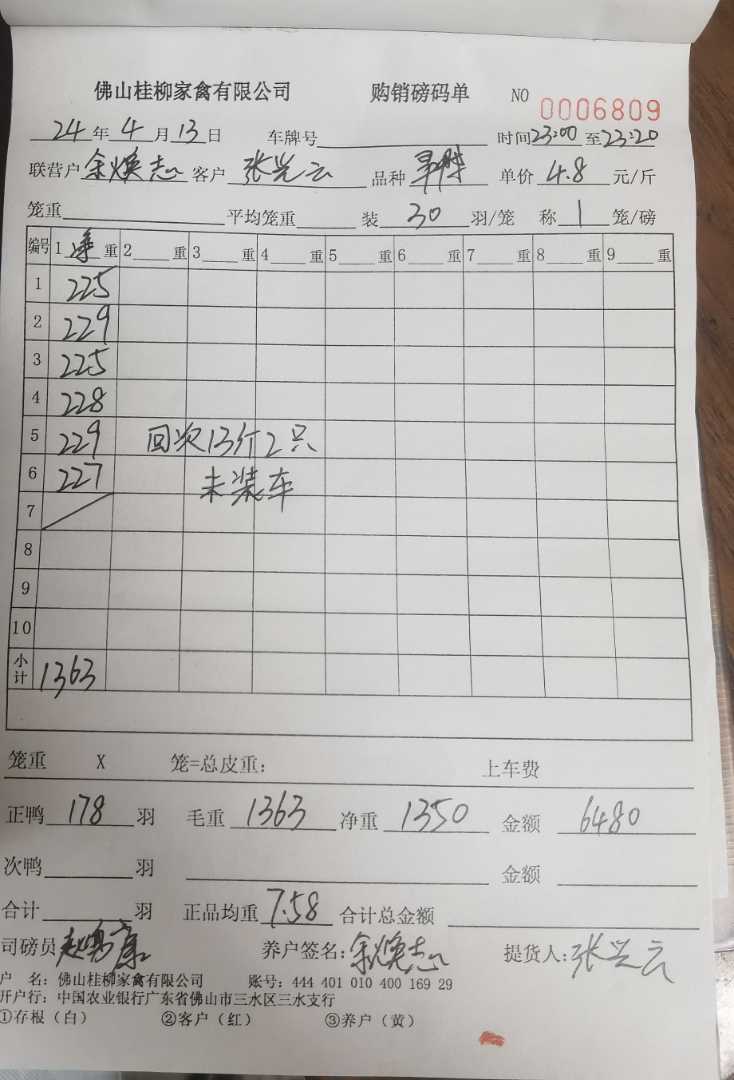 佛山桂柳家禽有限公司 购销磅码单 NO 0006809
24年4月13日 车牌号 时间23:00至23:20
联营户余焕志 客户张兴云 品种 单价4.8元/斤
笼重 平均笼重 装30羽/笼 称1笼/磅
编号 1净重 2重 3重 4重 5重 6重 7重 8重 9重
1 225
2 229
3 225
4 228
5 229 回次13斤2只
6 227 未装车
7
8
9
10
小计 1363
笼重 X 笼=总皮重: 上车费
正鸭178羽 毛重1363 净重1350 金额6480
次鸭 羽 金额
合计 羽 正品均重7.58 合计总金额
司磅员 养户签名:余焕志 提货人:张兴云
户 名: 佛山桂柳家禽有限公司 账号: 444 401 010 400 169 29
开户行: 中国农业银行广东省佛山市三水区三水支行
①存根（白） ②客户（红） ③养户（黄）